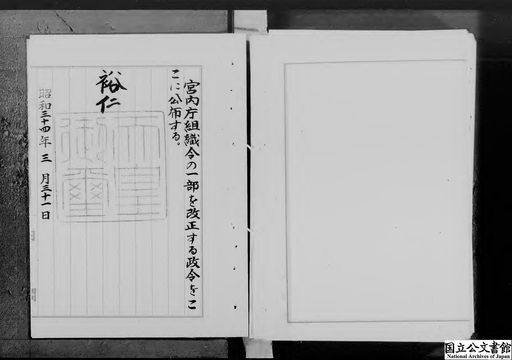 宮内庁組織令の一部を改正する政令をこ
こに公布する。
裕仁
天皇
御璽
昭和三十四年 三 月三十一日
国立公文書館
National Archives of Japan